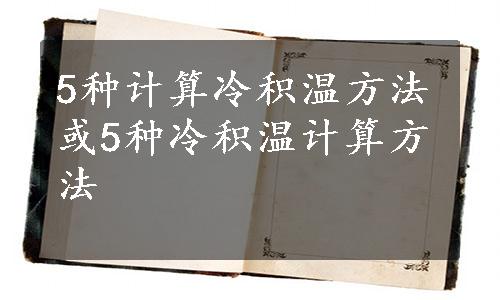 5种计算冷积温方法
或5种冷积温计算方
法